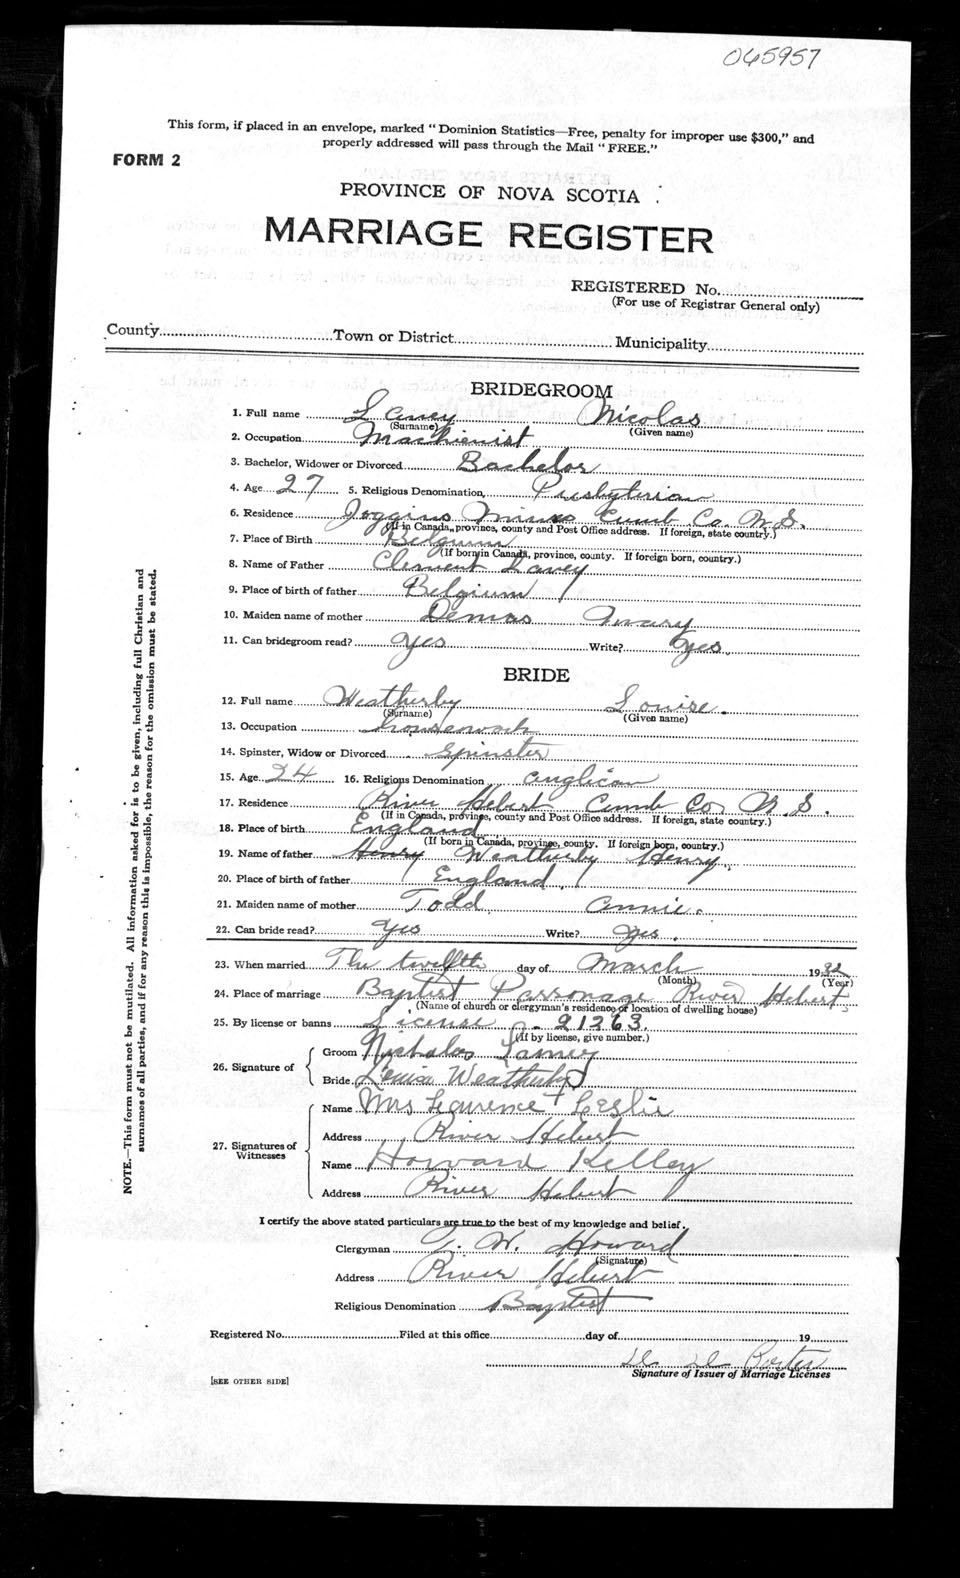 065957
This form, if placed in an envelope, marked "Dominion Statistics—Free, penalty for improper use $300," and
properly addressed will pass through the Mail "FREE."
FORM 2
PROVINCE OF NOVA SCOTIA
MARRIAGE REGISTER
REGISTERED No.
(For use of Registrar General only)
County Town or District Municipality
BRIDEGROOM
1. Full name Laney Nicolas
(Surname) (Given name)
2. Occupation Machienist
3. Bachelor, Widower or Divorced Bachelor
4. Age 27 5. Religious Denomination Presbyterian
6. Residence Joggins Mines Cumb Co. N.S.
(If in Canada, province, county and Post Office address. If foreign, state country.)
7. Place of Birth Belgium
(If born in Canada, province, county. If foreign born, country.)
8. Name of Father Clement Laney
9. Place of birth of father Belgium
10. Maiden name of mother Demas Mary
11. Can bridegroom read? Yes Write? Yes.
BRIDE
12. Full name Weatherby Louise.
(Surname) (Given name)
13. Occupation Housework
14. Spinster, Widow or Divorced Spinster
15. Age 24 16. Religious Denomination Anglican
17. Residence River Hebert Cumb Co. N.S.
(If in Canada, province, county and Post Office address. If foreign, state country.)
18. Place of birth England
(If born in Canada, province, county. If foreign born, country.)
19. Name of father Henry Weatherby Henry.
20. Place of birth of father England.
21. Maiden name of mother Todd Annie.
22. Can bride read? Yes Write? Yes.
23. When married The twelfth day of March 1932
(Month) (Year)
24. Place of marriage Baptist Parsonage River Hebert
(Name of church or clergyman's residence or location of dwelling house)
25. By license or banns License - 21263.
(If by license, give number.)
26. Signature of
Groom Nicholas Laney
Bride Louisa Weatherby
27. Signatures of Witnesses
Name Mrs Laurence Leslie
Address River Hebert
Name Howard Kelley
Address River Hebert
I certify the above stated particulars are true to the best of my knowledge and belief.
Clergyman W. Howard
(Signature)
Address River Hebert
Religious Denomination Baptist
Registered No. Filed at this office day of 19
Porter
Signature of Issuer of Marriage Licenses
[SEE OTHER SIDE]
NOTE.—This form must not be mutilated. All information asked for is to be given, including full Christian and
surnames of all parties, and if for any reason this is impossible, the reason for the omission must be stated.